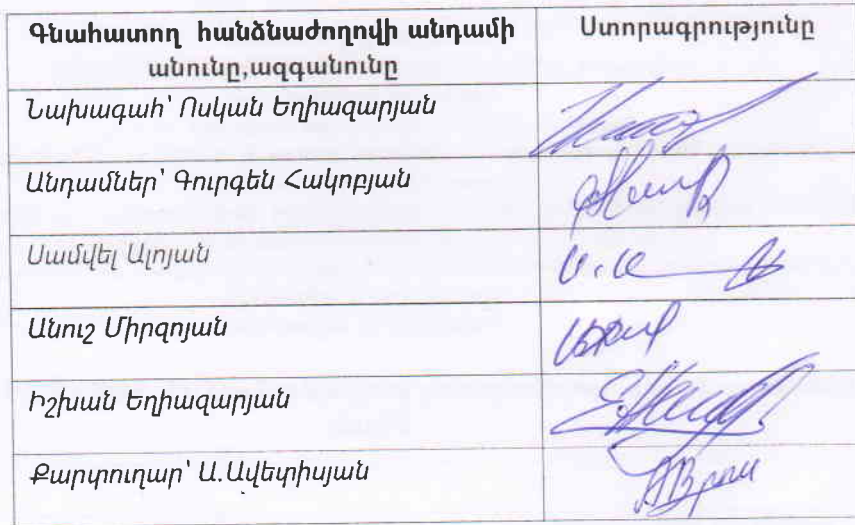 Գնահատող հանձնաժողովի անդամի Ստորագրությունը
անունը,ազգանունը
Նախագահ՝ Ոսկան Եղիազարյան
Անդամներ՝ Գուրգեն Հակոբյան
Սամվել Ալոյան
Անուշ Միրզոյան
Իշխան Եղիազարյան
Քարտուղար՝ Ա.Ավետիսյան